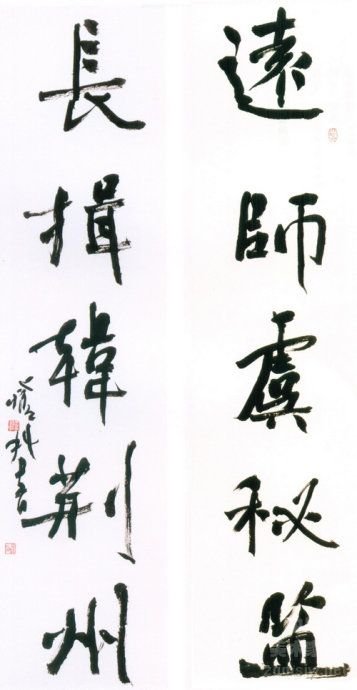 遠師虞秘監
長揖韓荆州